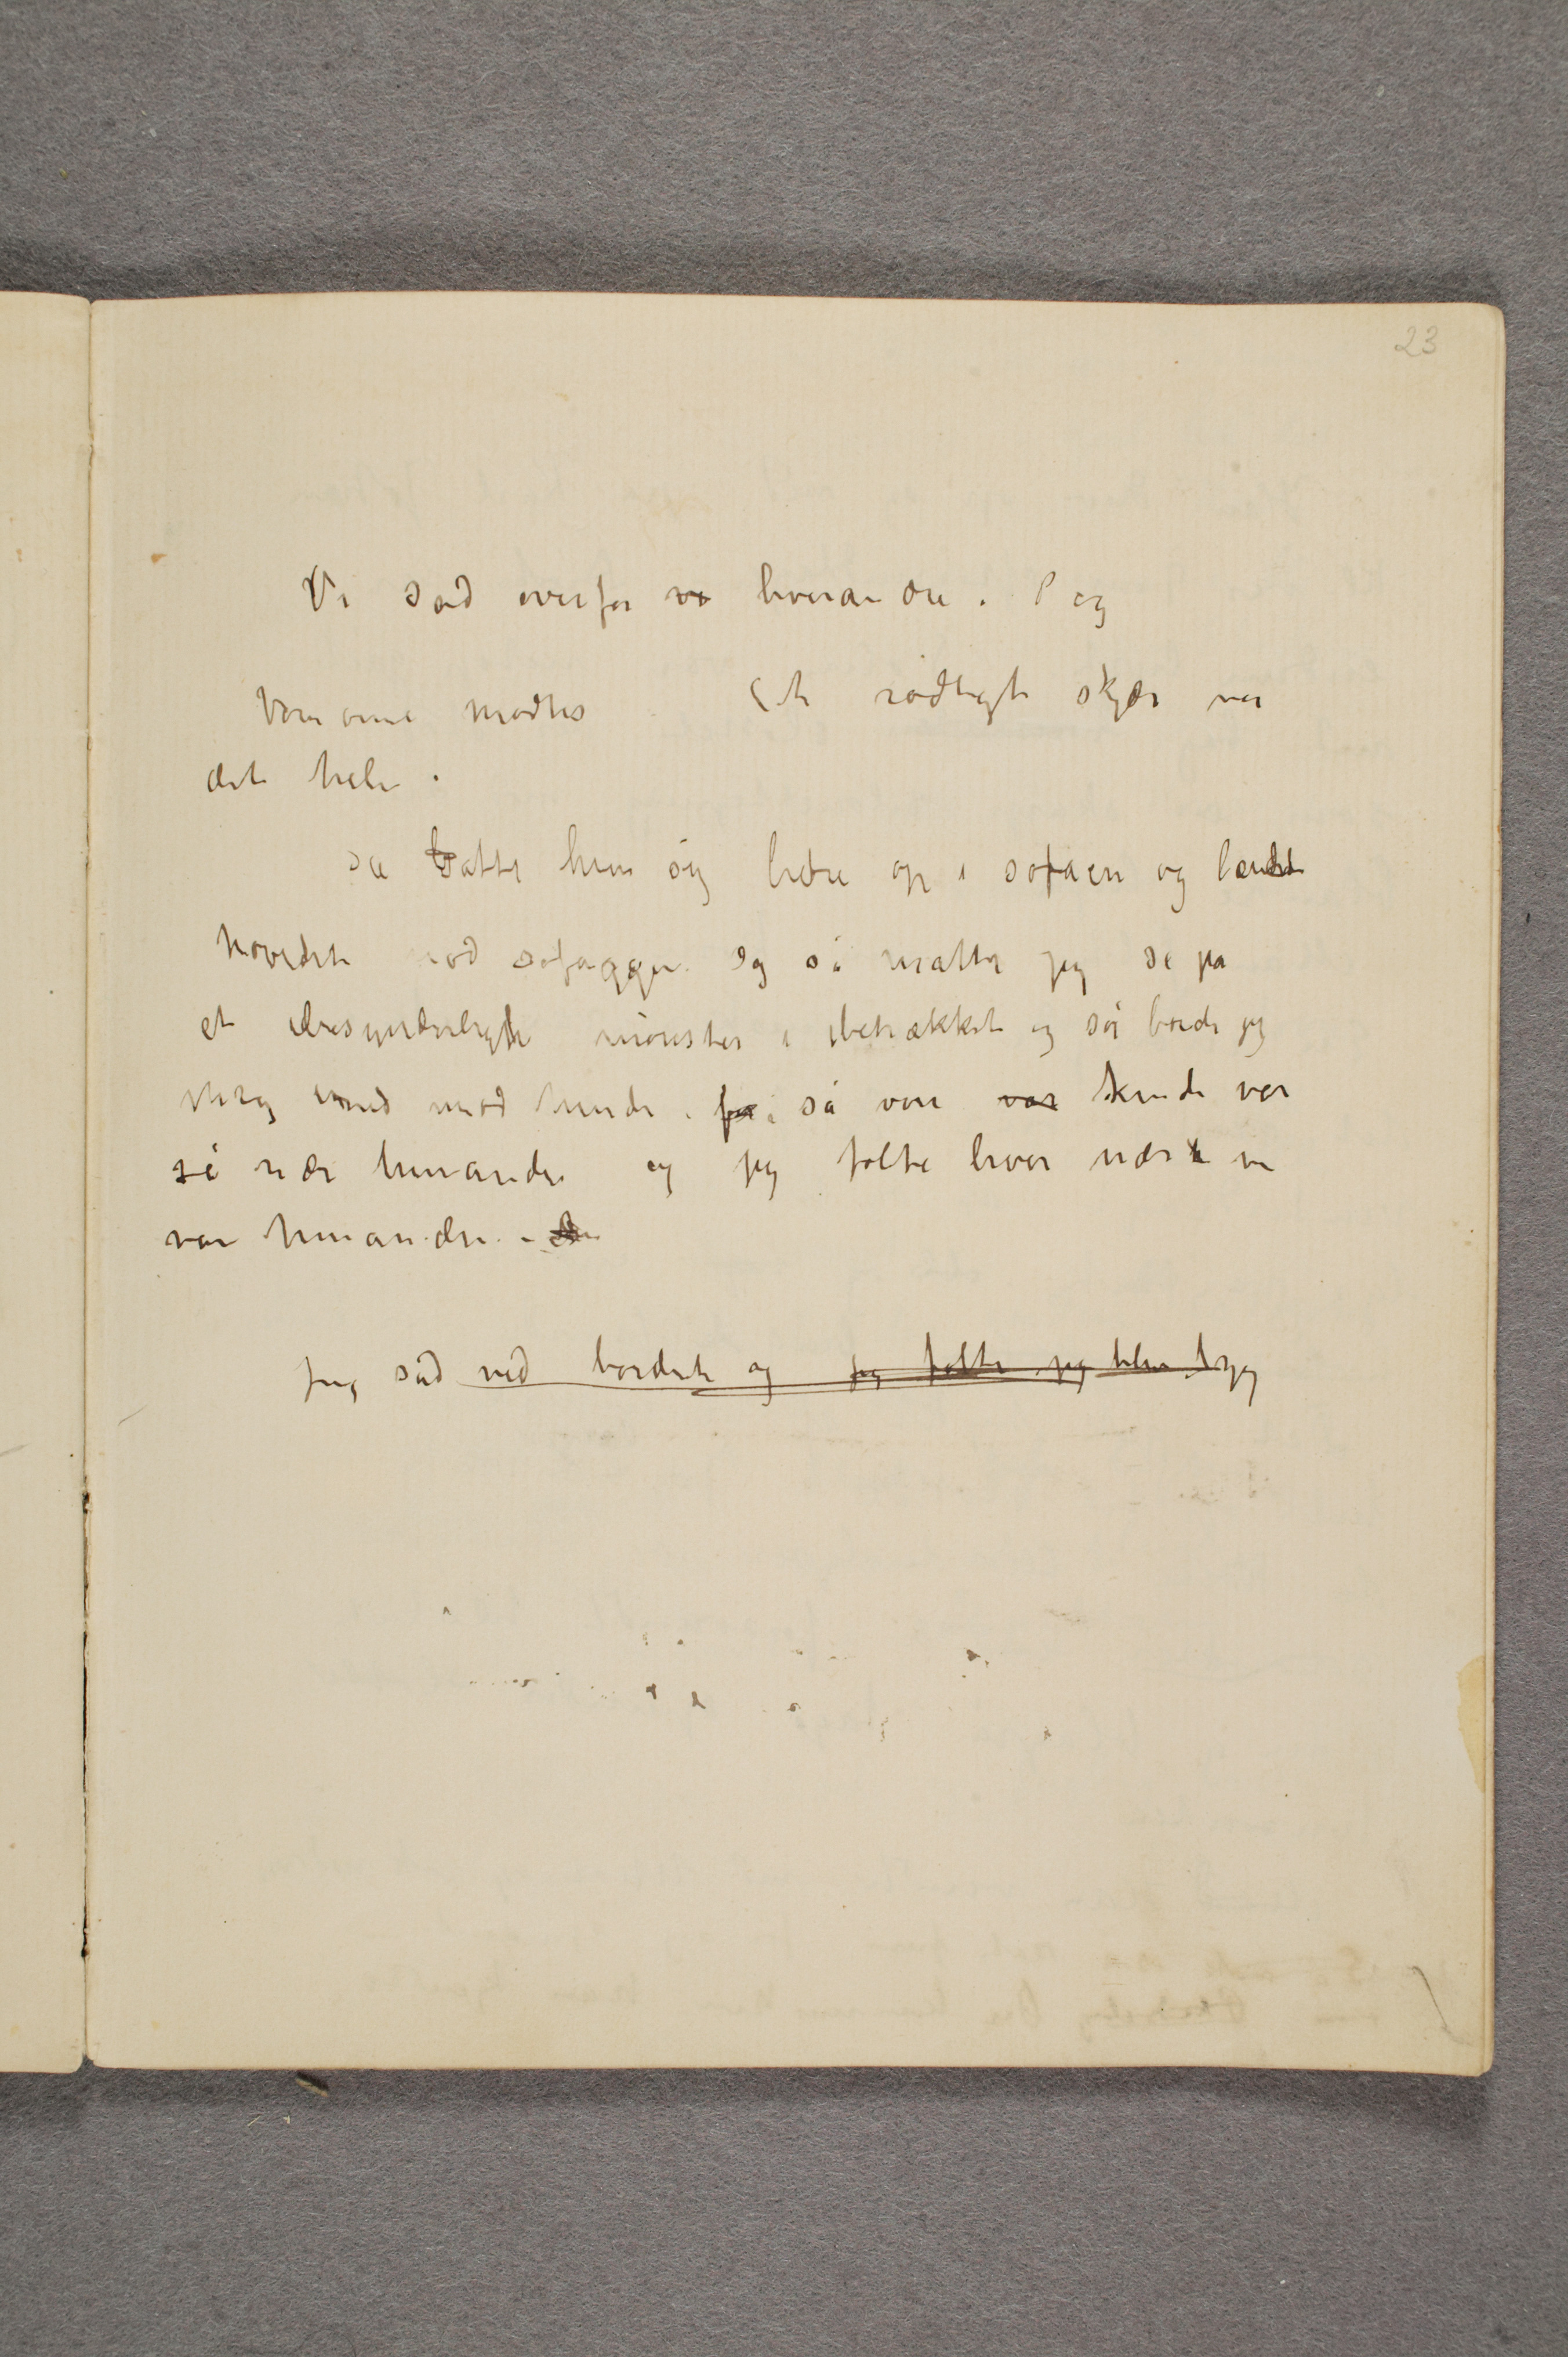 23
Vi sad overfor vi hverandre. Og
Vore øine mødtes Et rødligt skjær var
det hele.
Så satte hun sig bedre op i sofaen og lænte
hovedet mod sofaryggen. Og så måtte jeg se på
et besynderligt mønster i betrækket og så boide jeg
mig ned mod hende. for så vore var kinde var
så nær hinanden og jeg følte hvor nær vi
var hinanden.
Jeg sad ved bordet og jeg følte jeg blev jeg